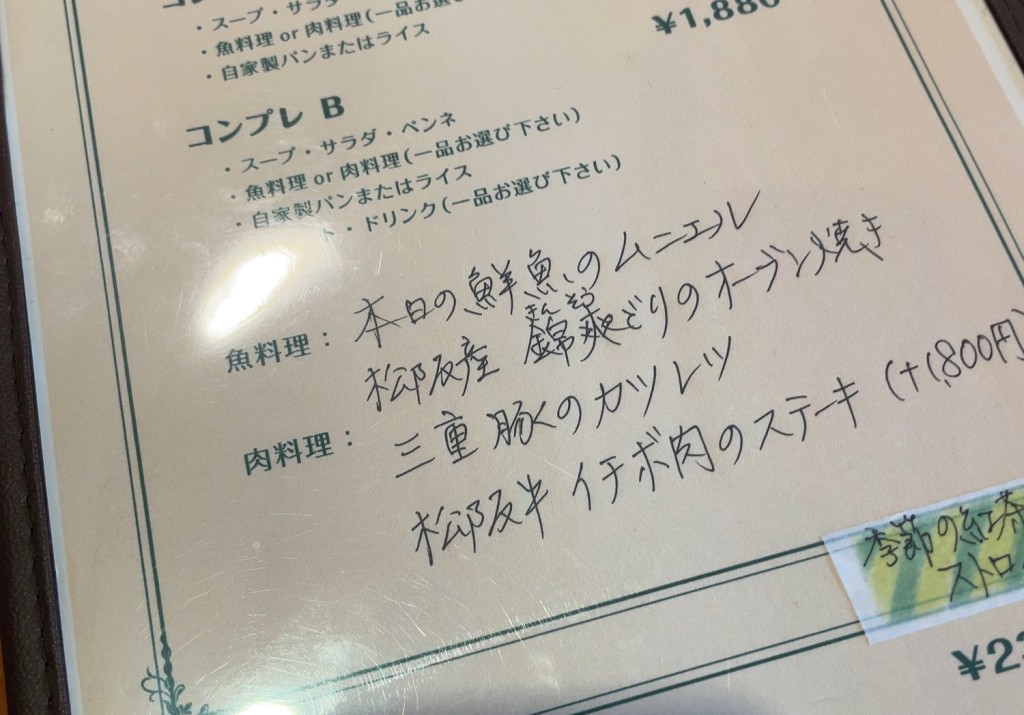 ・スープ・サラダ
・魚料理 or 肉料理(一品お選
・自家製パンまたはライス
¥1,880
コンプレ B
・スープ・サラダ・ペンネ
・魚料理 or 肉料理(一品お選び下さい)
・自家製パンまたはライス
ト・ドリンク(一品お選び下さい)
魚料理: 本日の鮮魚のムニエル
きんそう
松阪産 錦爽どりのオーブン焼き
肉料理: 三重豚のカツレツ
松阪牛 イチボ肉のステーキ (+1,800円)
季節の紅茶
ストロ
¥2